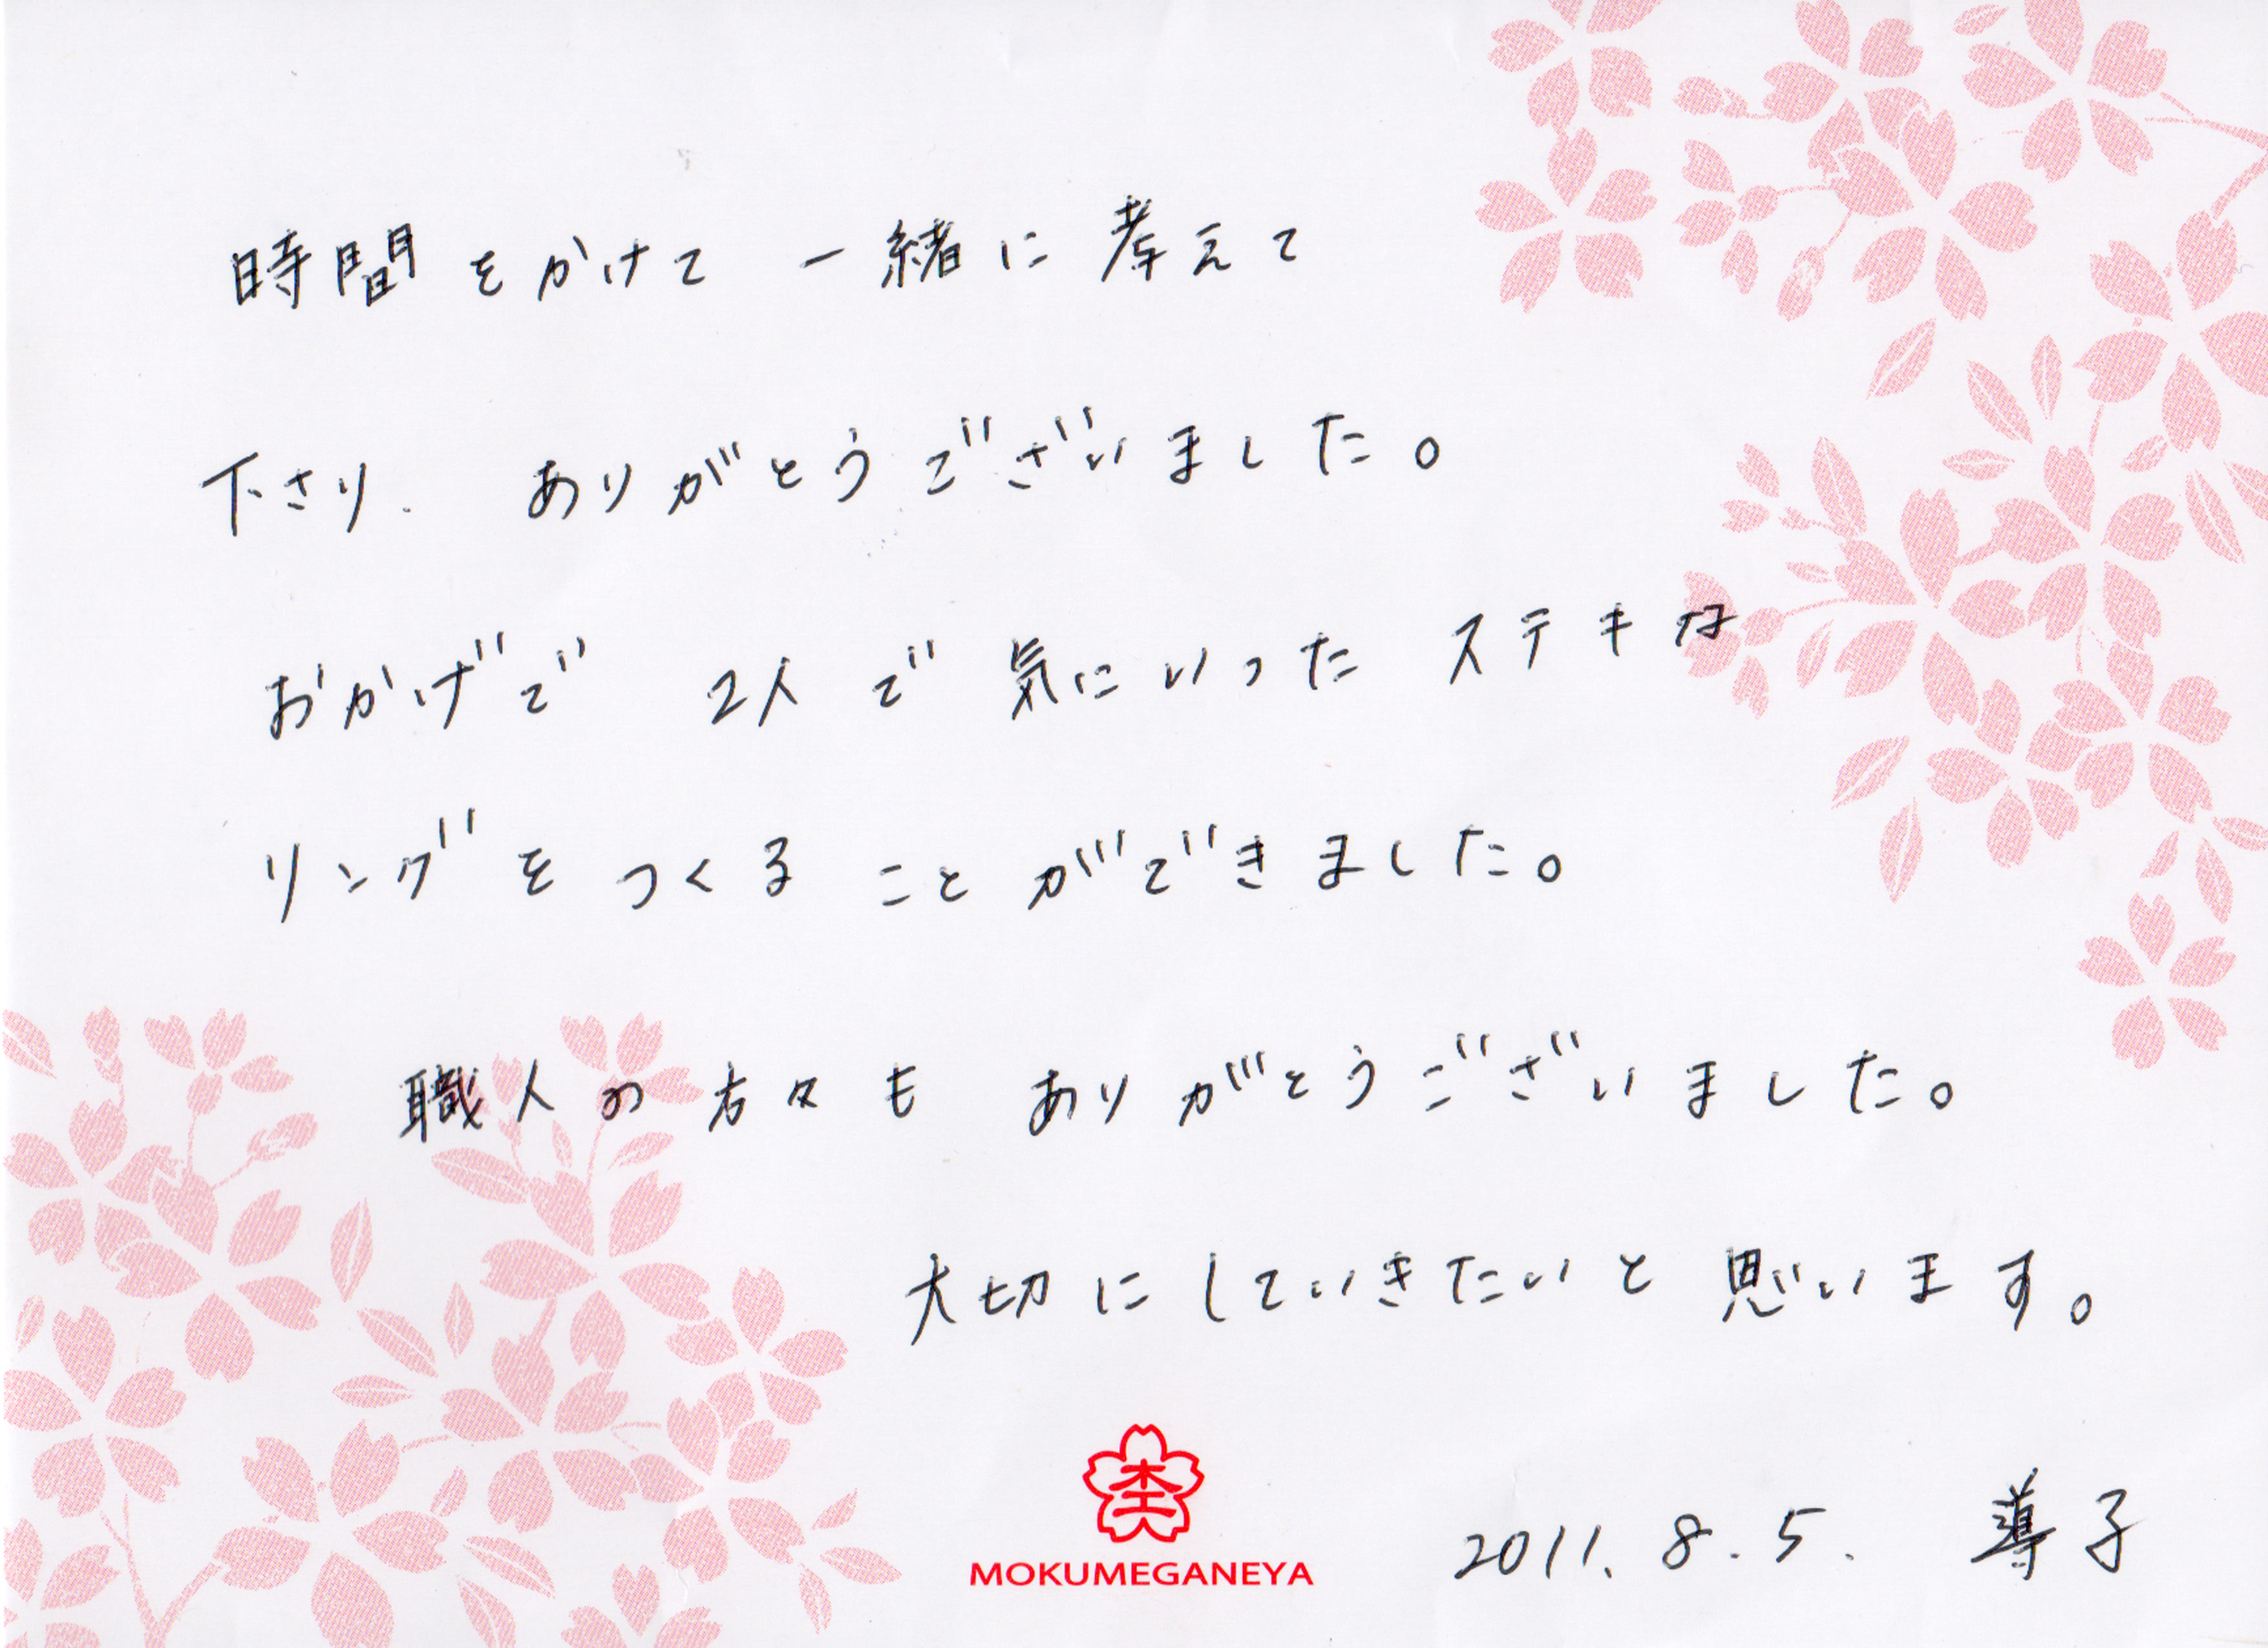 時間をかけて 一緒に考えて
下さり、 ありがとうございました。
おかげで 2人で気にいった ステキな
リングを つくる ことができました。
職人の方々も ありがとうございました。
大切にしていきたいと思います。
MOKUMEGANEYA
2011. 8. 5. 導子